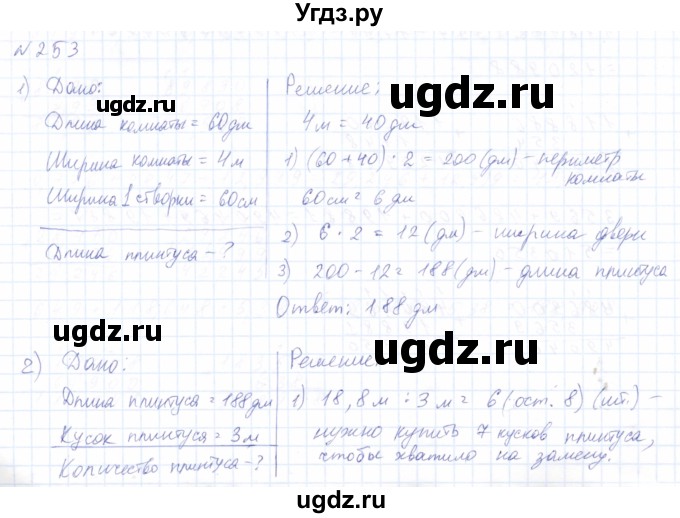 Угдз.ру
№253
1) Дано:
Длина комнаты = 60дм
Ширина комнаты = 4м
Ширина 1 створки = 60см
Длина плинтуса - ?
Решение:
4м = 40дм
1) (60 + 40) · 2 = 200 (дм) - периметр
комнаты
60см = 6 дм
2) 6 · 2 = 12 (дм) - ширина двери
3) 200 - 12 = 188 (дм) - длина плинтуса
Ответ: 188 дм
2) Дано:
Длина плинтуса = 188дм
Кусок плинтуса = 3м
Количество плинтуса - ?
Решение:
1) 18,8м : 3м = 6 (ост. 8) (шт.) -
нужно купить 7 кусков плинтуса,
чтобы хватило на замену.
ugdz.ru
ugdz.ru
ugdz.ru
ugdz.ru
ugdz.ru
ugdz.ru
ugdz.ru